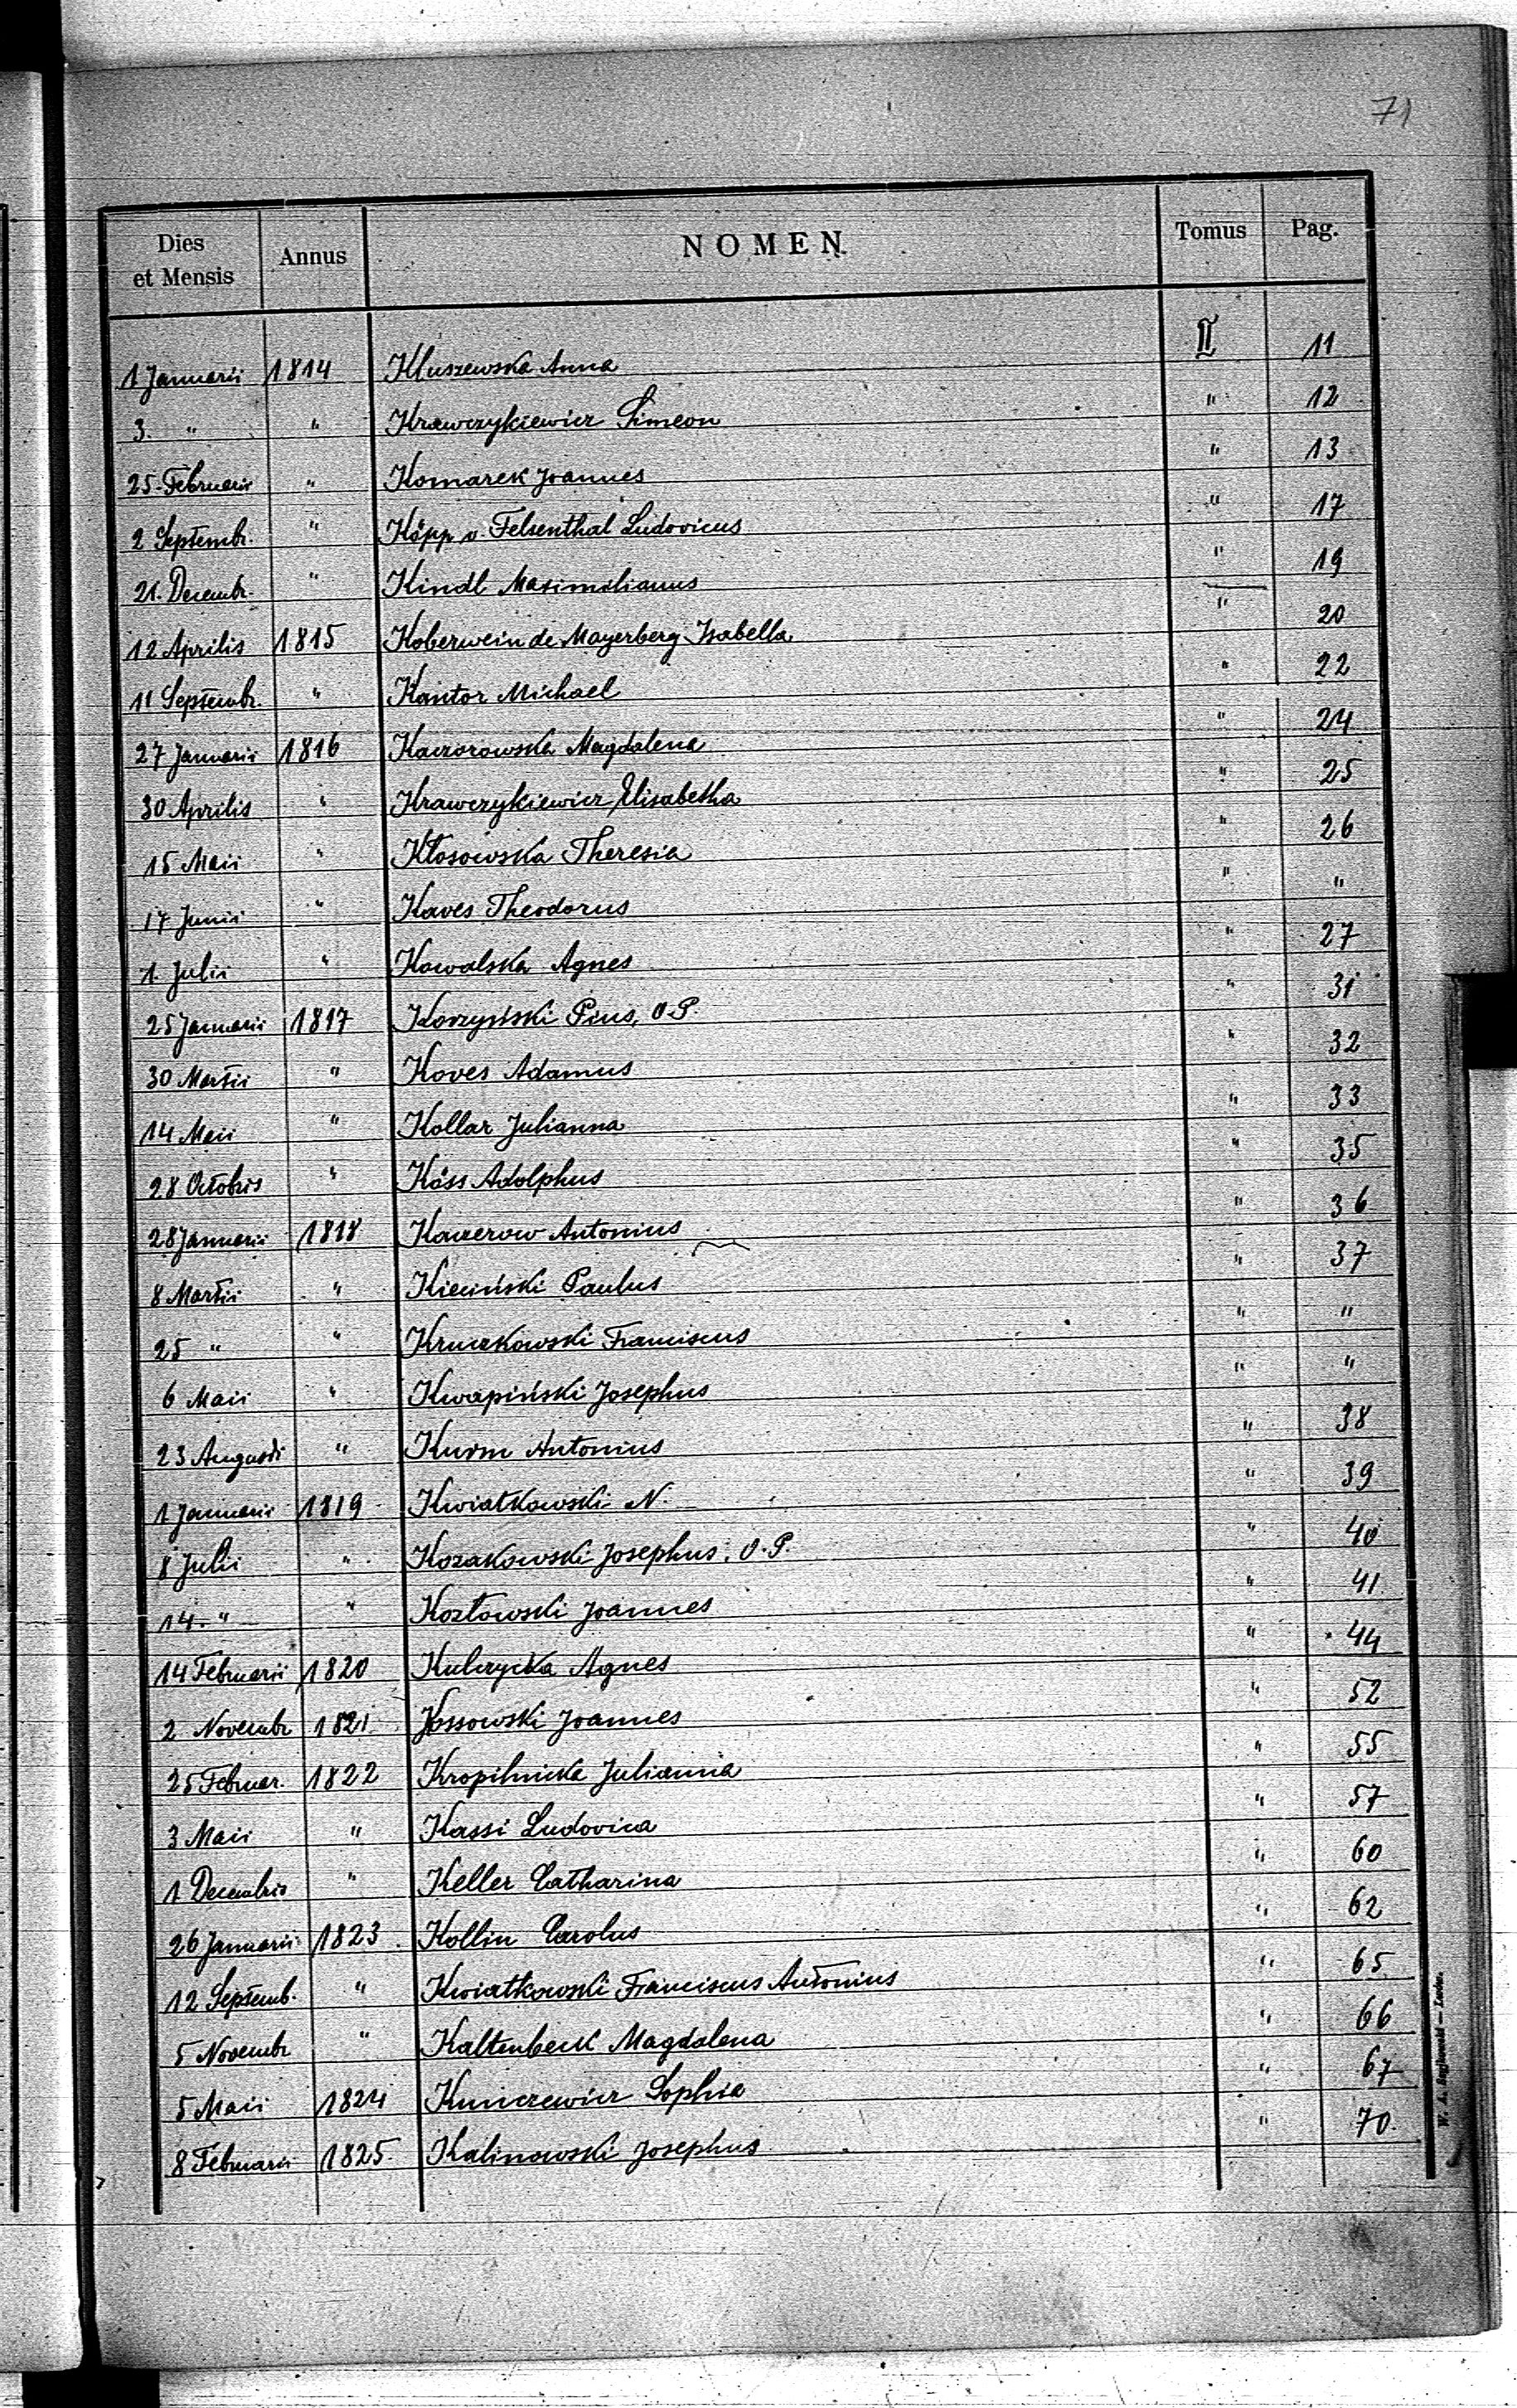 71
Dies et Mensis Annus NOMEN. Tomus Pag.
1 Januarii 1814 Kluszewska Anna II 11
3. " " Krawczykiewicz Simeon " 12
25. Februarii " Komarek Joannes " 13
2 Septembr. " Köpp v. Felsenthal Ludovicus " 17
21. Decembr. " Kindl Maximilianus " 19
12 Aprilis 1815 Koberwein de Mayerberg Isabella " 20
11 Septembr. " Kantor Michael " 22
27 Januarii 1816 Kaczorowska Magdalena " 24
30 Aprilis " Krawczykiewicz Elisabetha " 25
15 Maii " Kłosowska Theresia " 26
17 Junii " Kaves Theodorus " "
1. Julii " Kowalska Agnes " 27
25 Januarii 1817 Korzyński Pius, O.P. " 31
30 Martii " Koves Adamus " 32
14 Maii " Kollar Julianna " 33
28 Octobris " Köss Adolphus " 35
28 Januarii 1818 Antonius " 36
8 Martii " Kieciński Paulus " 37
25 " " Kruczkowski Franciscus " "
6 Maii " Kwapiński Josephus " "
23 Augusti " Kurm Antonius " 38
1 Januarii 1819 Kwiatkowski N. " 39
8 Julii " Kozakowski Josephus, O.P. " 40
14. " " Kozłowski Joannes " 41
14 Februarii 1820 Kulczycka Agnes " 44
2 Novembr 1821 Kossowski Joannes " 52
25 Februar. 1822 Kropilnicka Julianna " 55
3 Maii " Kassi Ludovica " 57
1 Decembris " Keller Catharina " 60
26 Januarii 1823 Kollin Carolus " 62
12 Septemb. " Kwiatkowski Franciscus Antonius " 65
5 Novembr " Kaltenbeck Magdalena " 66
5 Maii 1824 Kuniczewicz Sophia " 67
8 Februarii 1825. Kalinowski Josephus " 70.